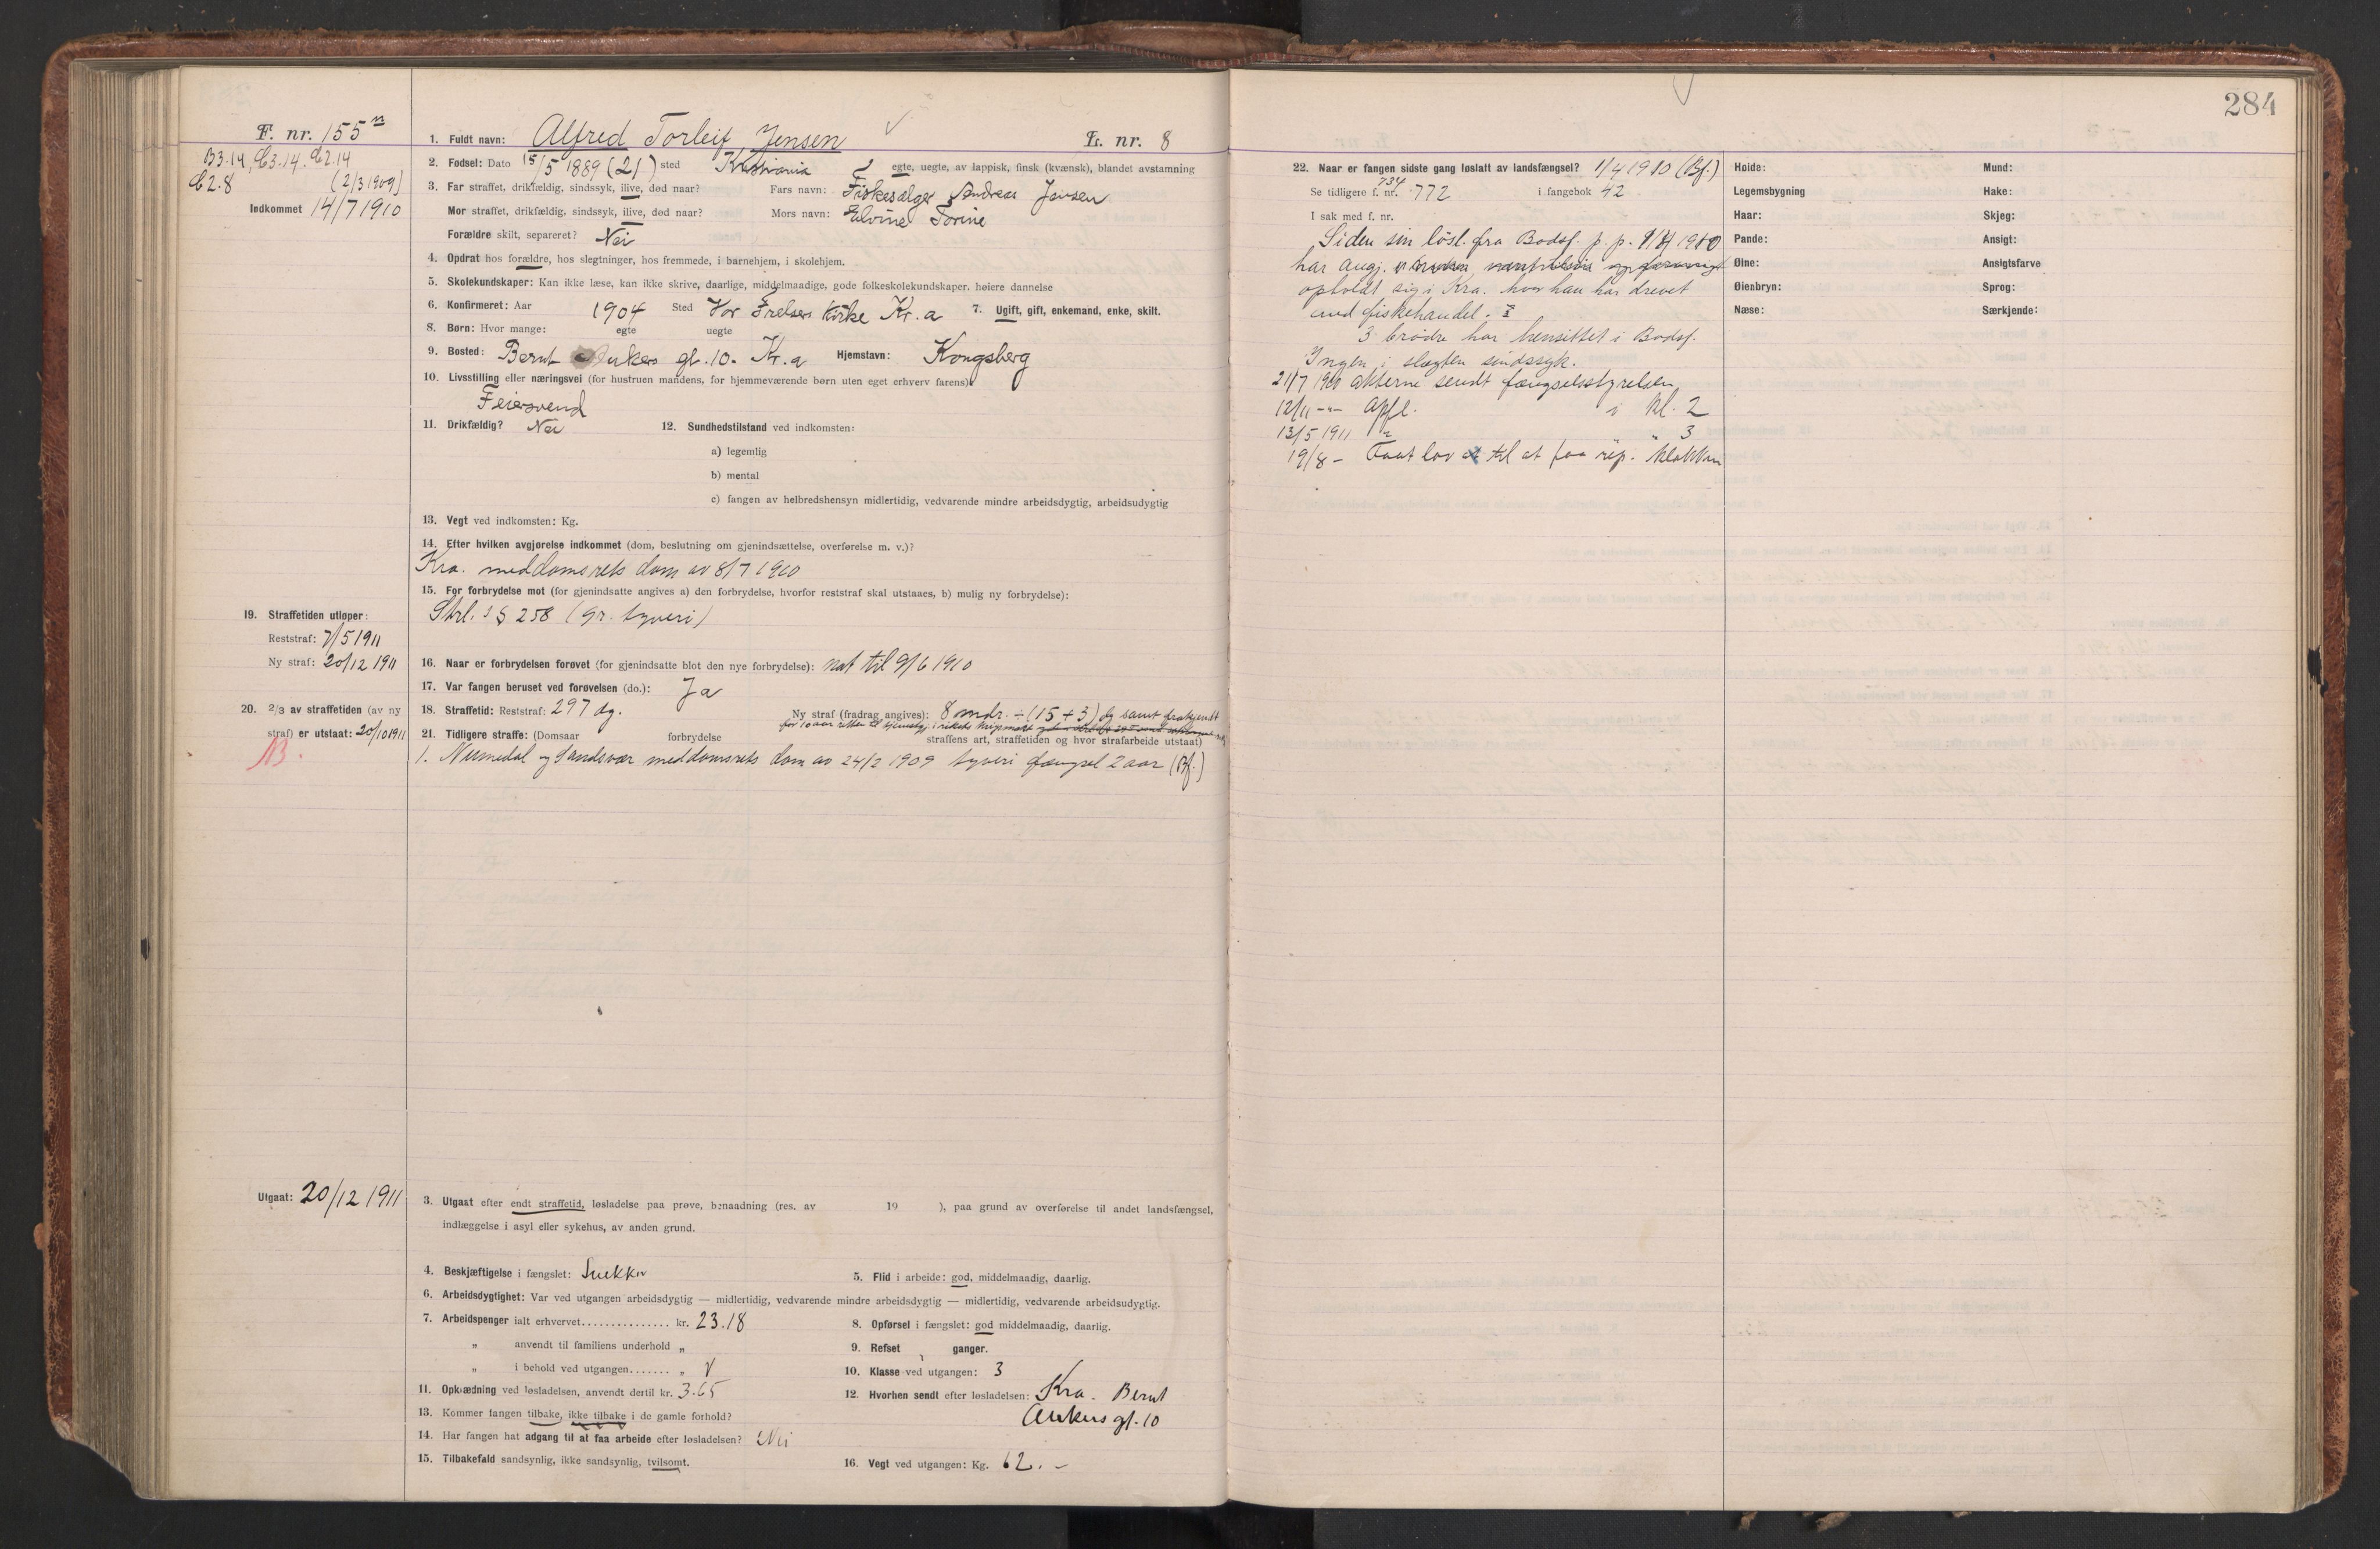 284
F. nr. 155
B3.14, C3.14. C2.14
C2.8 (2/3 1909)
Indkommet 14/7 1910
1. Fuldt navn: Alfred Torleif Jensen L. nr. 8
2. Fødsel: Dato 15/5 1889 (21) sted Kristiania egte, uegte, av lappisk, finsk (kvænsk), blandet avstamning
3. Far straffet, drikfældig, sindssyk, ilive, død naar? Fars navn: Fiskesælger Andreas Jensen
Mor straffet, drikfældig, sindssyk, ilive, død naar? Mors navn: Elvine Torine
Forældre skilt, separeret? Nei
4. Opdrat hos forældre, hos slegtninger, hos fremmede, i barnehjem, i skolehjem.
5. Skolekundskaper: Kan ikke læse, kan ikke skrive, daarlige, middelmaadige, gode folkeskolekundskaper. høiere dannelse
6. Konfirmeret: Aar 1904 Sted Vor Frelsers Kirke Kr.a 7. Ugift, gift, enkemand, enke, skilt.
8. Børn: Hvor mange: egte uegte
9. Bosted: Bernt Ankers gt. 10. Kr.a Hjemstavn: Kongsberg
10. Livsstilling eller næringsvei (for hustruen mandens, for hjemmeværende børn uten eget erhverv farens):
Feiersvend
11. Drikfældig? Nei 12. Sundhedstilstand ved indkomsten:
a) legemlig
b) mental
c) fangen av helbredshensyn midlertidig, vedvarende mindre arbeidsdygtig, arbeidsudygtig
13. Vegt ved indkomsten: Kg.
14. Efter hvilken avgjørelse indkommet (dom, beslutning om gjenindsættelse, overførelse m. v.)?
Kra. meddomsrets dom av 8/7 1910
15. For forbrydelse mot (for gjenindsatte angives a) den forbrydelse, hvorfor reststraf skal utstaaes, b) mulig ny forbrydelse):
Strl. § 258 (gr. tyveri)
19. Straffetiden utløper:
Reststraf: 7/5 1911
Ny straf: 20/12 1911
16. Naar er forbrydelsen forøvet (for gjenindsatte blot den nye forbrydelse): nat til 9/6 1910
17. Var fangen beruset ved forøvelsen (do.): Ja
20. 2/3 av straffetiden (av ny straf) er utstaat: 20/10 1911
B.
18. Straffetid: Reststraf: 297 dg. Ny straf (fradrag angives): 8 mdr. ÷ (15 + 3) dg samt frakjendt
for 10 aar retten til tjenestgj. i rikets krigsmagt
21. Tidligere straffe: (Domsaar forbrydelse straffens art, straffetiden og hvor strafarbeide utstaat)
1. Numedal og Sandsvær meddomsrets dom av 24/2 1909 tyveri fængsel 2 aar (Bf.)
Utgaat: 20/12 1911
3. Utgaat efter endt straffetid, løsladelse paa prøve, benaadning (res. av 19 ), paa grund av overførelse til andet landsfængsel,
indlæggelse i asyl eller sykehus, av anden grund.
4. Beskjæftigelse i fængslet: Snekker 5. Flid i arbeide: god, middelmaadig, daarlig.
6. Arbeidsdygtighet: Var ved utgangen arbeidsdygtig — midlertidig, vedvarende mindre arbeidsdygtig — midlertidig, vedvarende arbeidsudygtig.
7. Arbeidspenger ialt erhvervet............... kr. 23.18 8. Opførsel i fængslet: god middelmaadig, daarlig.
" anvendt til familiens underhold " 9. Refset ganger.
" i behold ved utgangen....... " 10. Klasse ved utgangen: 3
11. Opklædning ved løsladelsen, anvendt dertil kr. 3.65 12. Hvorhen sendt efter løsladelsen: Kra. Bernt
Ankers gt. 10
13. Kommer fangen tilbake, ikke tilbake i de gamle forhold?
14. Har fangen hat adgang til at faa arbeide efter løsladelsen? Nei
15. Tilbakefald sandsynlig, ikke sandsynlig, tvilsomt. 16. Vegt ved utgangen: Kg. 62. -
22. Naar er fangen sidste gang løslatt av landsfængsel? 1/4 1910 (Bf.)
734
Se tidligere f. nr. 772 i fangebok 42
I sak med f. nr.
Siden sin løsl. fra Bodsf. p. p. 1/4 1910
har angj.
opholdt sig i Kra. hvor han har drevet
med fiskehandel.
3 brødre har hensittet i Bodsf.
Ingen i slægten sindssyk.
21/7 1910 akterne sendt fængselsstyrelsen
12/11 -"- Opfl. i kl. 2
13/5 1911 " " 3
19/8 - Faat lov til at faa rep. klokken
Høide: Mund:
Legemsbygning Hake:
Haar: Skjeg:
Pande: Ansigt:
Øine: Ansigtsfarve
Øienbryn: Sprog:
Næse: Særkjende: